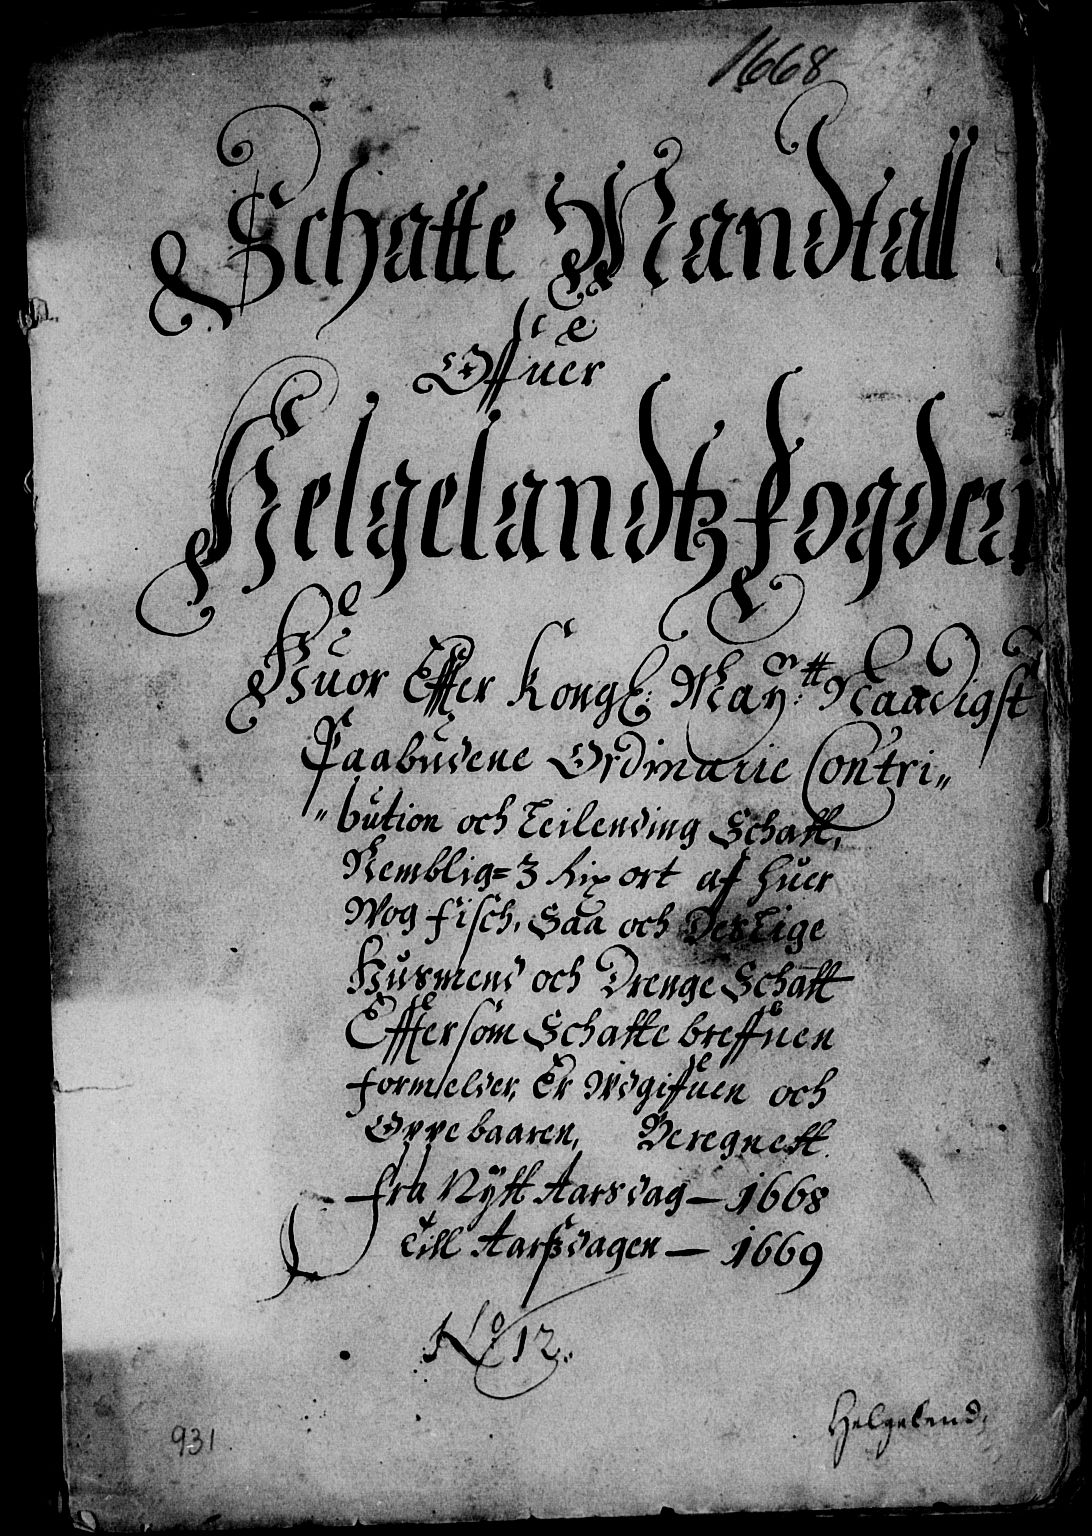 1668
Schatte Mandtall
Offuer
Helgelandtz fogderi
Huor Effter Kongl: May:tt Naadigst
Paabudene Ordinarie Contri„
„bution och Leilending Schatt,
Nemblig= 3 Rix ort af huer
Wog fisch, Saa och Deslige
Husmend och Drenge Schatt
Efftersom Schatte breffuen
formelder, Er Wdgifuen och
Oppebaaren, Beregnett
fra Nytt Aarsdag — 1668
Till Aarszdagen — 1669
No 12.
Helgeland,
931